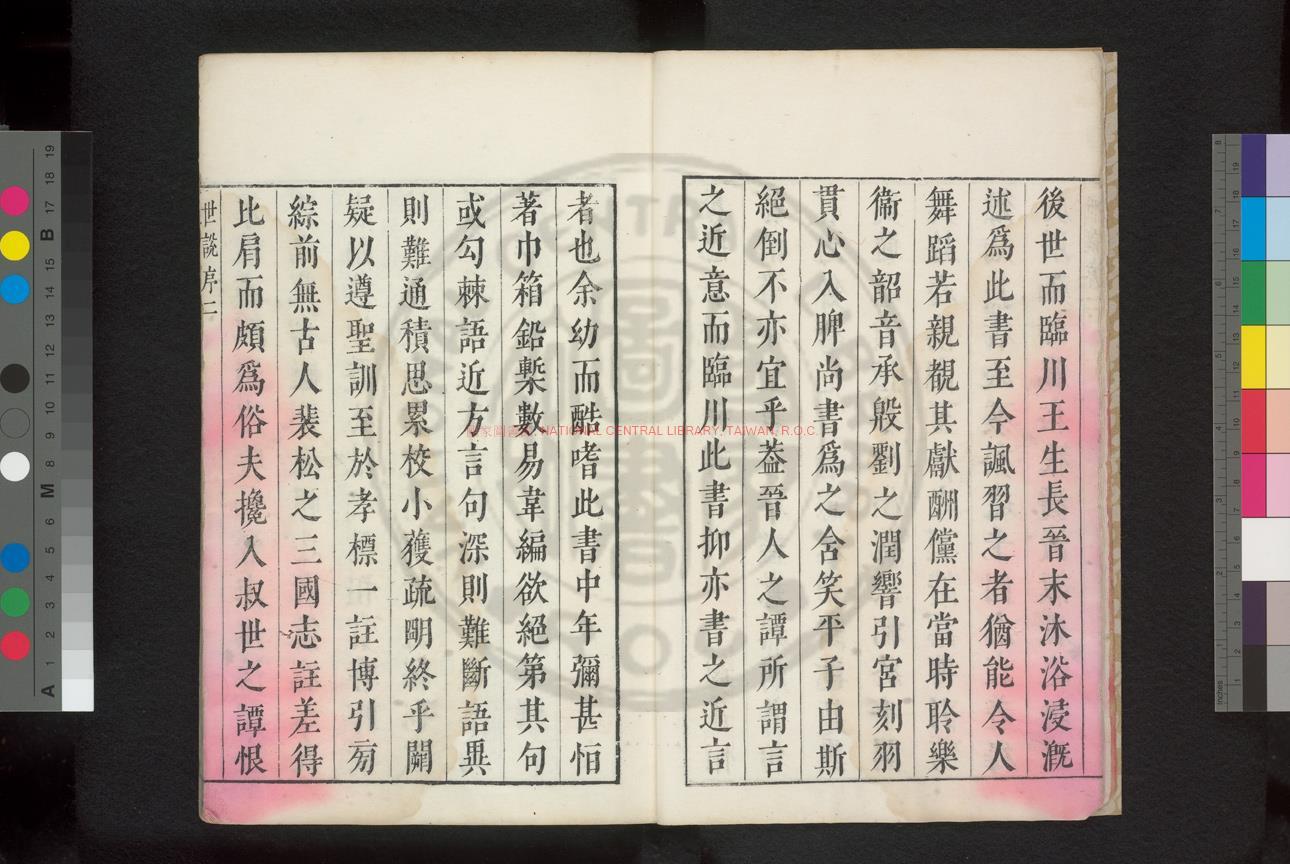 後世而臨川王生長晉末沐浴浸漑
述爲此書至今諷習之者猶能令人
舞蹈若親覩其獻酬儻在當時聆樂
衞之韶音承殷劉之潤響引宮刻羽
貫心入脾尚書爲之含笑平子由斯
絕倒不亦宜乎葢晉人之譚所謂言
之近意而臨川此書抑亦書之近言
者也余幼而酷嗜此書中年彌甚恒
著巾箱鉛槧數易韋編欲絕第其句
或勾棘語近方言句深則難斷語異
則難通積思累校小獲疏明終乎闕
疑以遵聖訓至於孝標一註博引旁
綜前無古人裴松之三國志註差得
比肩而頗爲俗夫攙入叔世之譚恨
世說序二
國家圖書館 NATIONAL CENTRAL LIBRARY, TAIWAN, R.O.C.